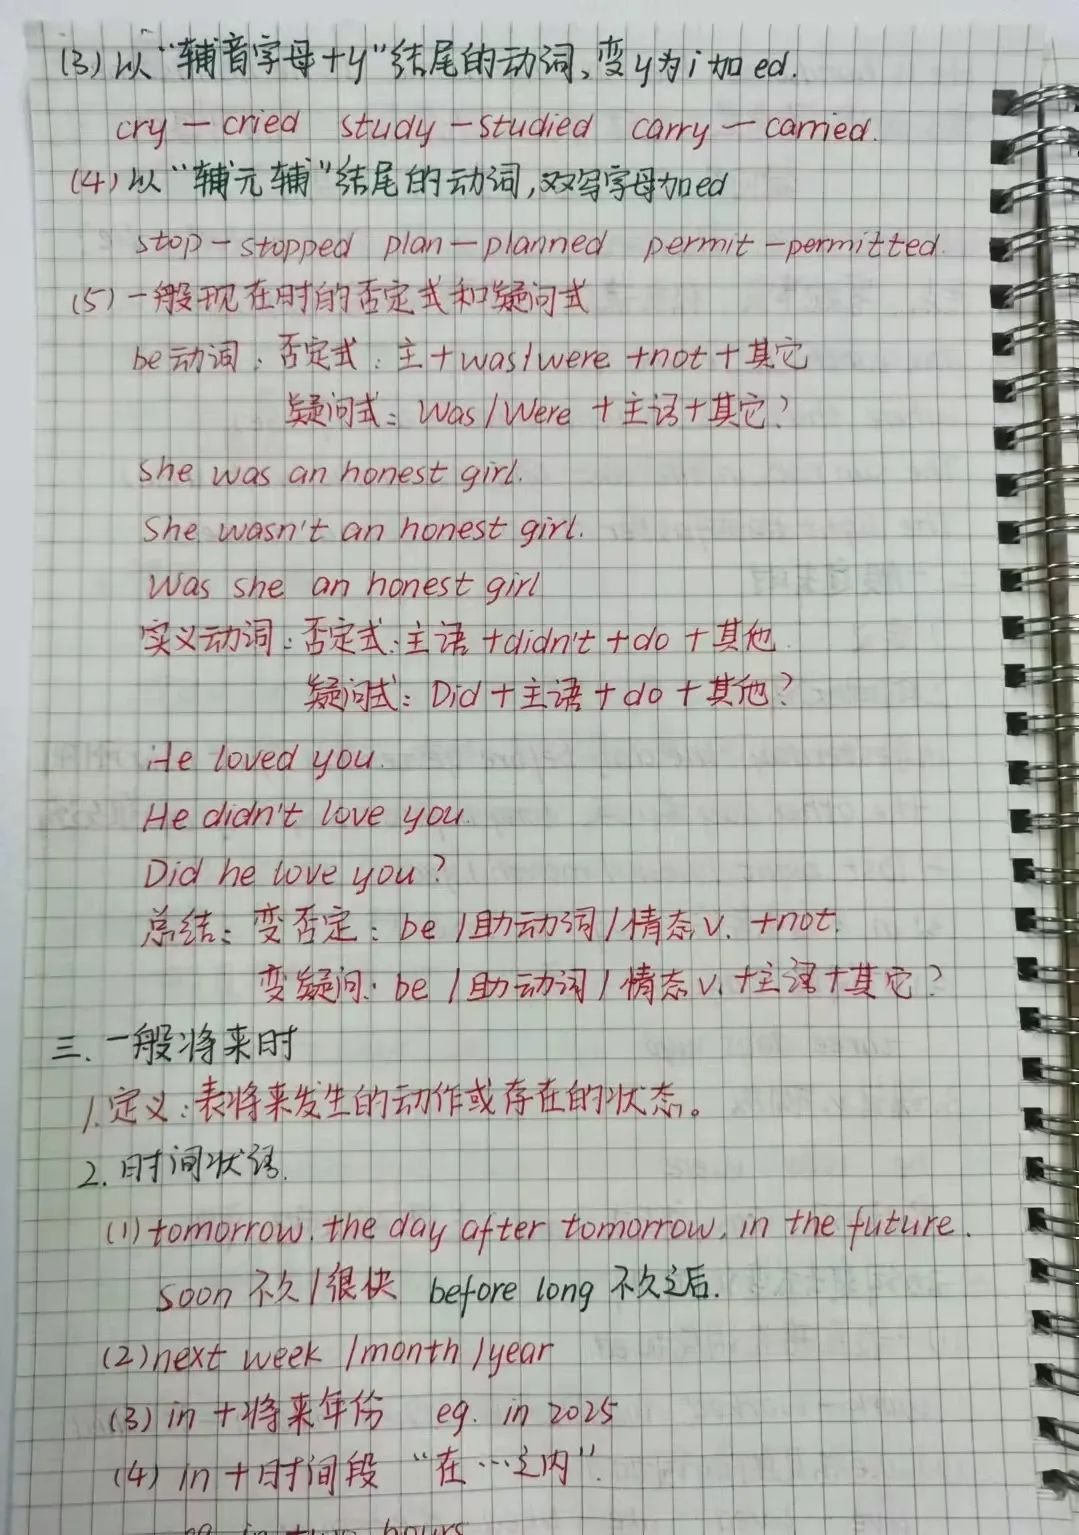 (3) 以“辅音字母+y”结尾的动词,变y为i加ed.
cry — cried study — studied carry — carried.
(4) 以“辅元辅”结尾的动词,双写字母加ed
stop — stopped plan — planned permit — permitted.
(5) 一般现在时的否定式和疑问式
be动词: 否定式: 主+was/were +not+其它
疑问式: Was/Were +主语+其它?
She was an honest girl.
She wasn't an honest girl.
Was she an honest girl
实义动词: 否定式: 主语+didn't+do+其他
疑问式: Did+主语+do+其他?
He loved you.
He didn't love you.
Did he love you?
总结: 变否定: be/助动词/情态v. +not.
变疑问: be/助动词/情态v. +主语+其它?
三. 一般将来时
1. 定义: 表将来发生的动作或存在的状态。
2. 时间状语.
(1) tomorrow, the day after tomorrow, in the future.
soon 不久/很快 before long 不久之后.
(2) next week /month /year
(3) in +将来年份 eg. in 2025
(4) in +时间段 “在…之内”.
eg. in two hours